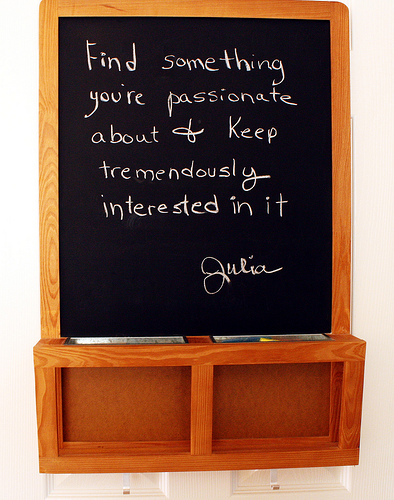 Find something
you're passionate
about & Keep
tremendously
interested in it
Julia